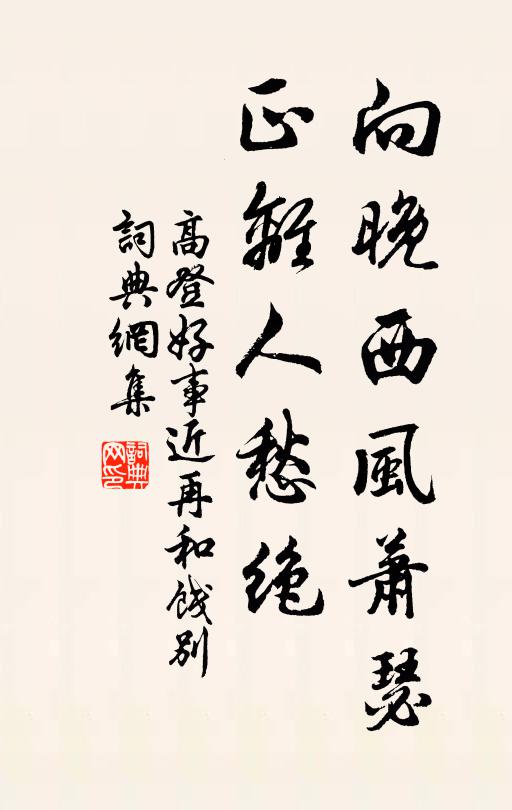 向晚西風蕭瑟
正離人愁絶
高登好事近再和餞别
詞典網集
詞典網印